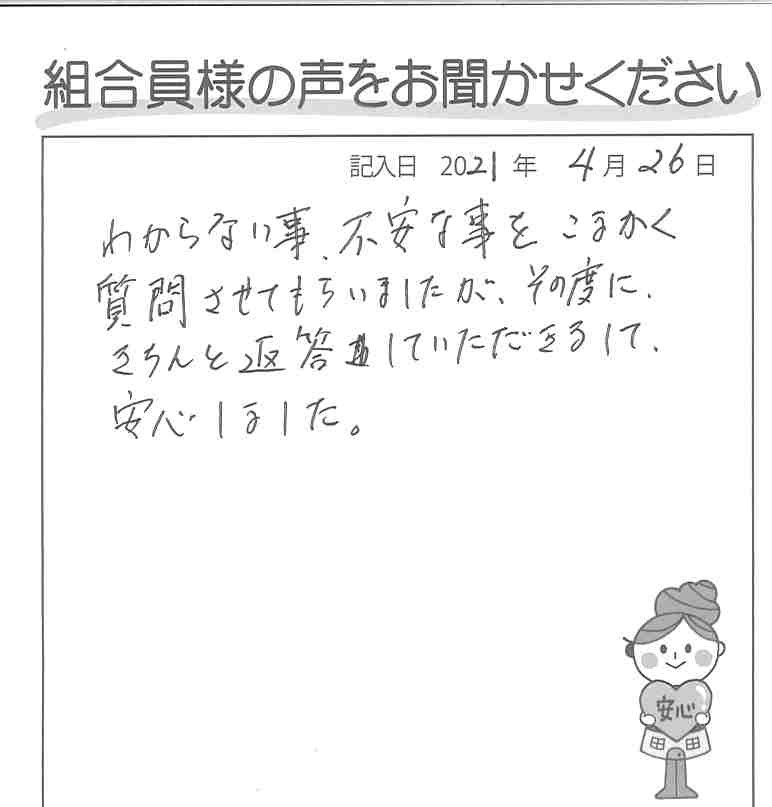 組合員様の声をお聞かせください
記入日 2021年 4月26日
わからない事、不安な事を こまかく
質問させてもらいましたが、その度に、
きちんと返答していただきまして、
安心しました。
安心